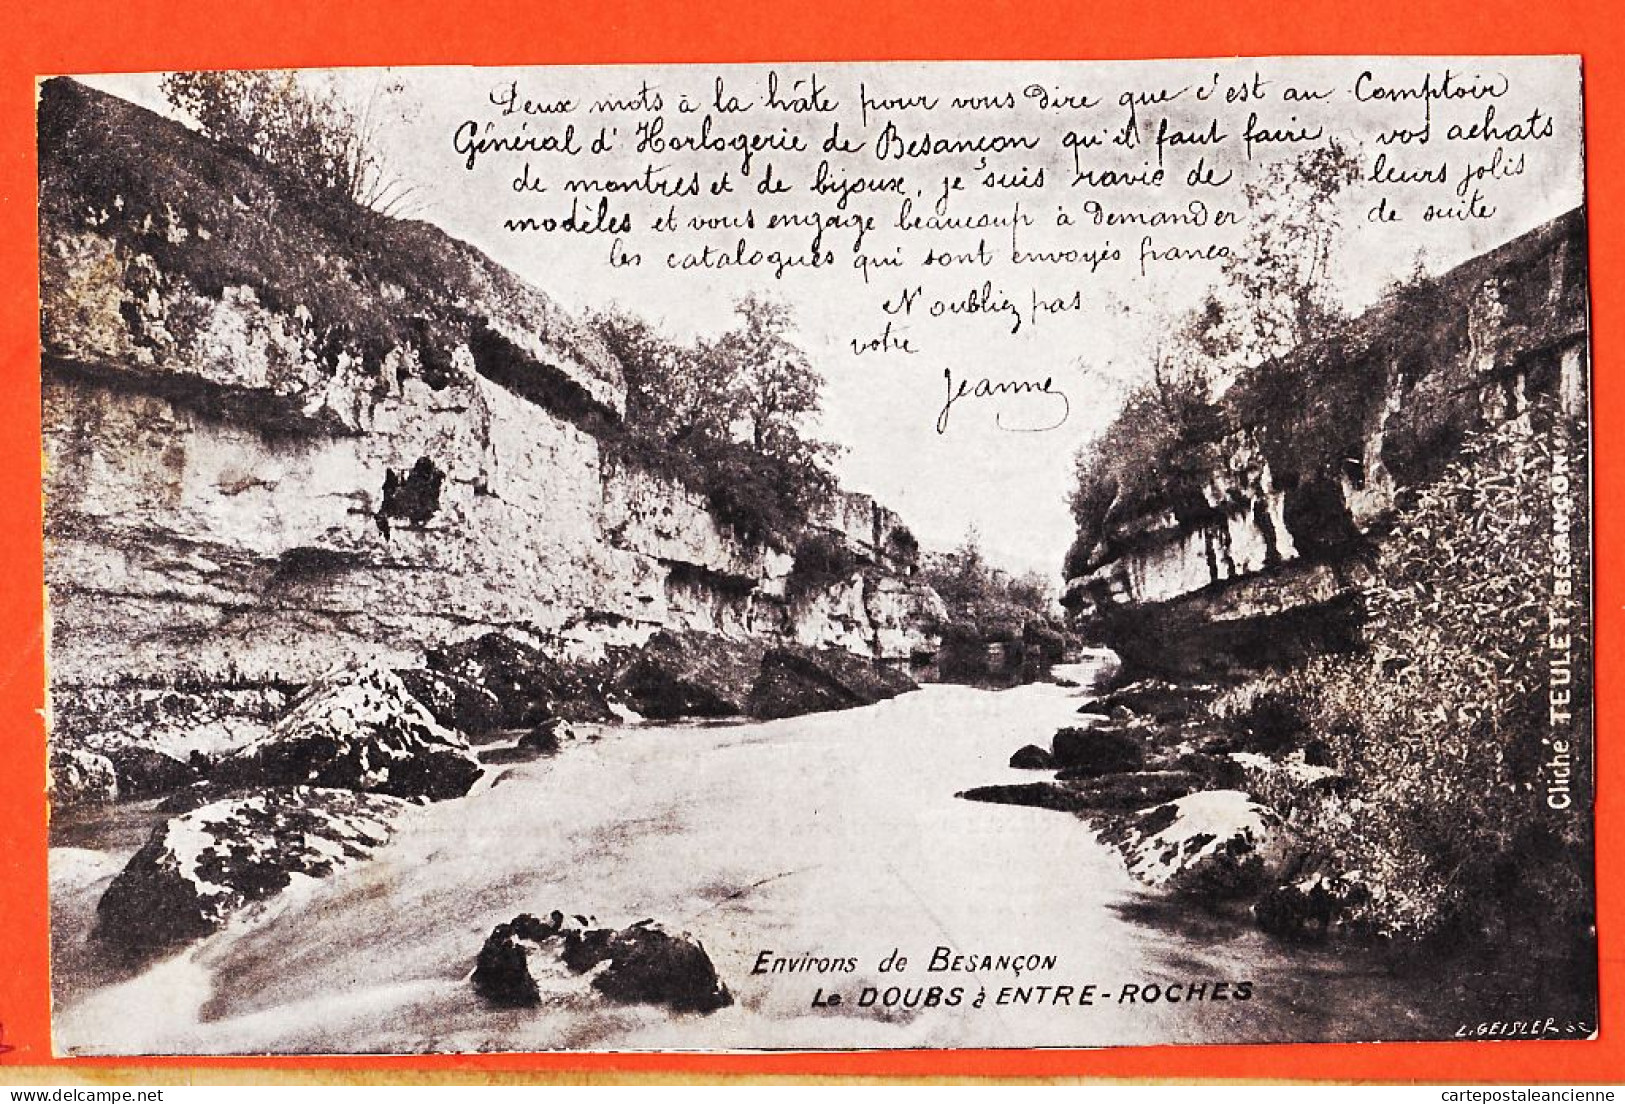 Deux mots à la hâte pour vous dire que c'est au Comptoir
Général d'Horlogerie de Besançon qu'il faut faire vos achats
de montres et de bijoux, je suis ravie de leurs jolis
modèles et vous engage beaucoup à demander de suite
les catalogues qui sont envoyés franco
N'oubliez pas
votre
Jeanne
Cliché TEULET, BESANCON
Environs de BESANÇON
Le DOUBS à ENTRE-ROCHES
L. GEISLER sc
delcampe.net
cartepostaleancienne